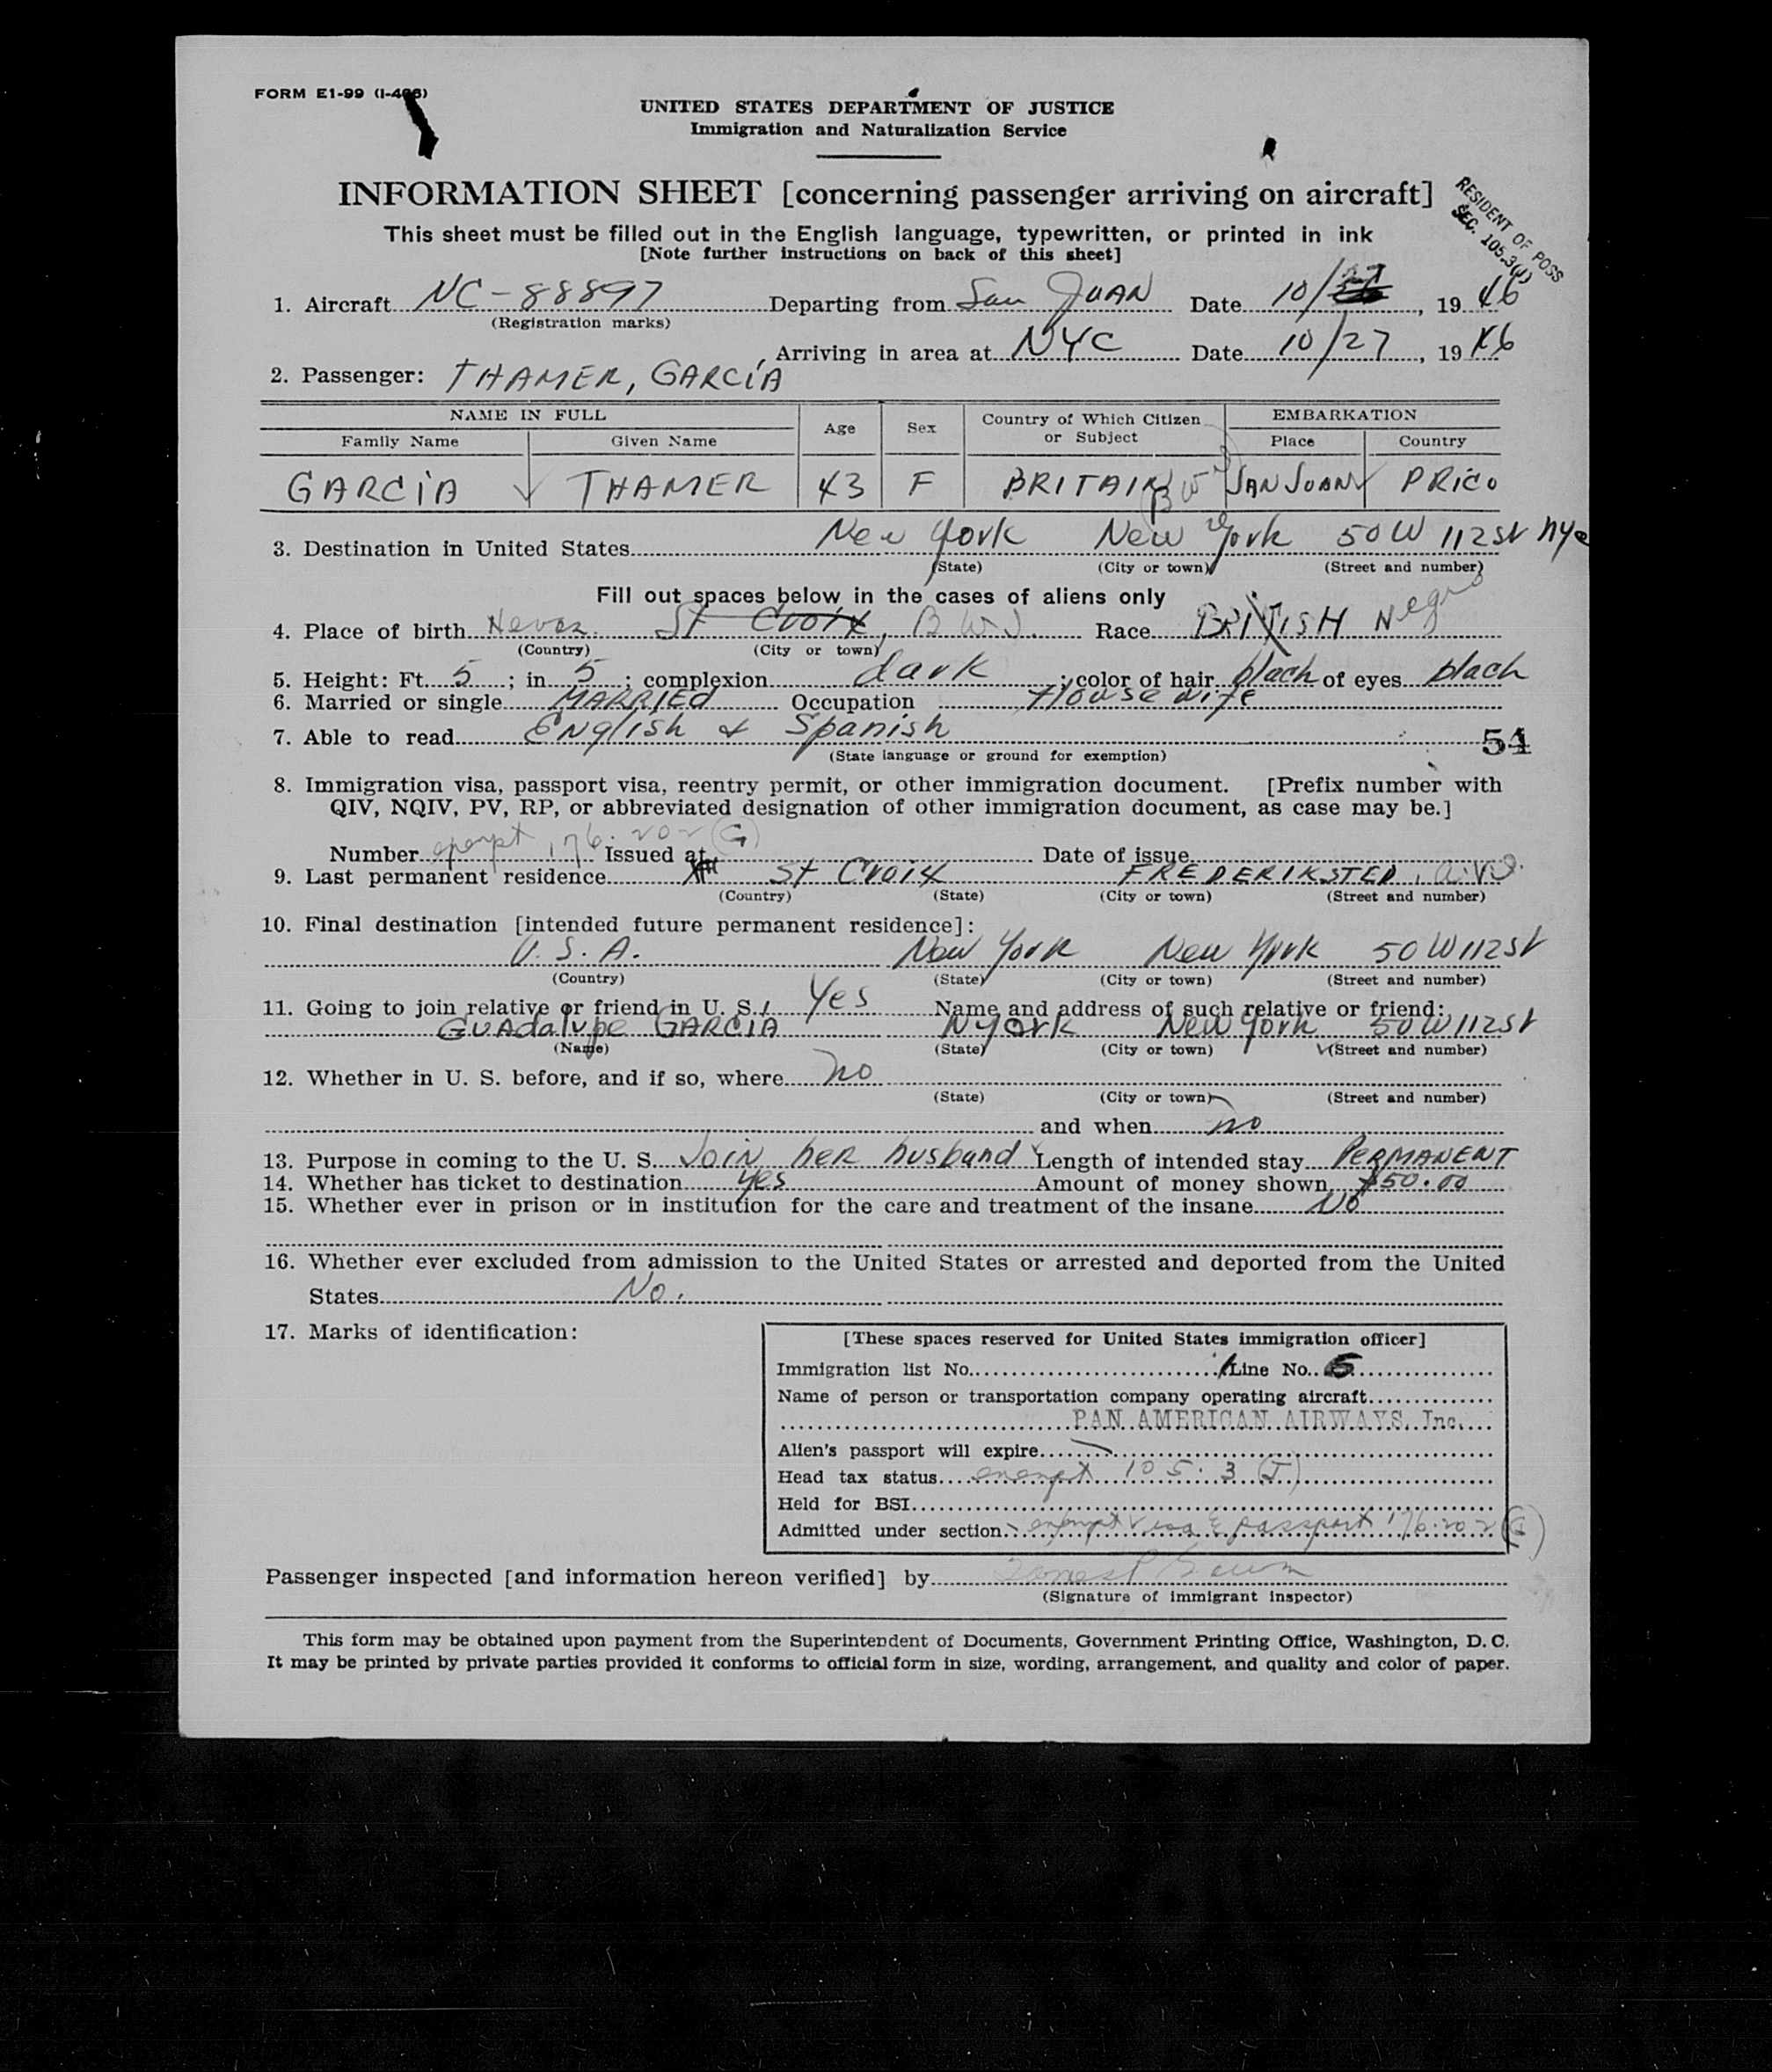 FORM E1-99 (I-466)
UNITED STATES DEPARTMENT OF JUSTICE
Immigration and Naturalization Service
INFORMATION SHEET [concerning passenger arriving on aircraft]
RESIDENT OF POSS
SEC. 105.3(J)
This sheet must be filled out in the English language, typewritten, or printed in ink
[Note further instructions on back of this sheet]
1. Aircraft NC-88897 Departing from San JUAN Date 10/27, 1946
(Registration marks)
Arriving in area at NYC Date 10/27, 1946
2. Passenger: THAMER, GARCIA
NAME IN FULL Age Sex Country of Which Citizen or Subject EMBARKATION
Family Name Given Name Place Country
GARCIA THAMER 43 F BRITAIN BWI SAN JUAN PRICO
3. Destination in United States New York New York 50 W 112 St nyc
(State) (City or town) (Street and number)
Fill out spaces below in the cases of aliens only
4. Place of birth Neves St Croix, B W I. Race BRITISH Negro
(Country) (City or town)
5. Height: Ft. 5; in 5; complexion dark; color of hair black of eyes black
6. Married or single MARRIEd Occupation Housewife
7. Able to read ENglish & Spanish
(State language or ground for exemption)
54
8. Immigration visa, passport visa, reentry permit, or other immigration document. [Prefix number with
QIV, NQIV, PV, RP, or abbreviated designation of other immigration document, as case may be.]
Number exempt 176.202 (G) Issued at Date of issue
9. Last permanent residence St Croix FREDERIKSTED, A.V.I.
(Country) (State) (City or town) (Street and number)
10. Final destination [intended future permanent residence]:
U.S.A. New York New York 50 W 112 St
(Country) (State) (City or town) (Street and number)
11. Going to join relative or friend in U. S. Yes Name and address of such relative or friend:
GUAdalupe GARCIA NYork New York 50 W 112 St
(Name) (State) (City or town) (Street and number)
12. Whether in U. S. before, and if so, where no
(State) (City or town) (Street and number)
and when no
13. Purpose in coming to the U. S. Join her husband Length of intended stay PERMANENT
14. Whether has ticket to destination yes Amount of money shown $50.00
15. Whether ever in prison or in institution for the care and treatment of the insane NO
16. Whether ever excluded from admission to the United States or arrested and deported from the United
States No.
17. Marks of identification:
[These spaces reserved for United States immigration officer]
Immigration list No. Line No. 5
Name of person or transportation company operating aircraft
PAN AMERICAN AIRWAYS, Inc.
Alien's passport will expire
Head tax status exempt 105.3 (J)
Held for BSI
Admitted under section exempt visa & passport 176.202 (G)
Passenger inspected [and information hereon verified] by
(Signature of immigrant inspector)
This form may be obtained upon payment from the Superintendent of Documents, Government Printing Office, Washington, D. C.
It may be printed by private parties provided it conforms to official form in size, wording, arrangement, and quality and color of paper.